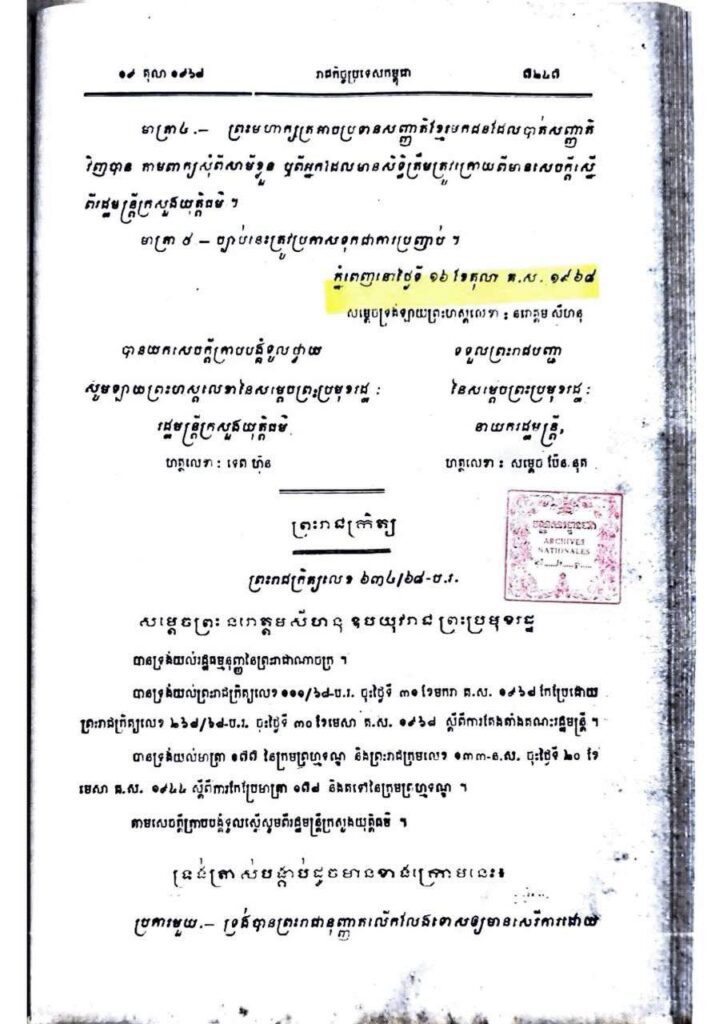 ១៩ តុលា ១៩៦៨ រាជកិច្ចប្រទេសកម្ពុជា ៧២៤៧
មាត្រា៤.— ព្រះមហាក្សត្រអាចប្រទានសញ្ជាតិខ្មែរមកជនដែលបាត់សញ្ជាតិ
វិញបាន តាមពាក្យសុំពីសាមីខ្លួន ឬពីអ្នកដែលមានសិទ្ធិត្រឹមត្រូវក្រោយពីមានសេចក្តីស្នើ
ពីរដ្ឋមន្ត្រីក្រសួងយុត្តិធមិ ។
មាត្រា ៥ — ច្បាប់នេះត្រូវប្រកាសទុកជាការប្រញាប់ ។
ភ្នំពេញនៅថ្ងៃទី ១៦ ខែតុលា គ.ស. ១៩៦៨
សម្តេចទ្រង់ឡាយព្រះហស្តលេខា : នរោត្តម សីហនុ
បានយកសេចក្តីក្រាបបង្គំទូលថ្វាយ ទទួលព្រះរាជបញ្ជា
សូមឡាយព្រះហស្តលេខានៃសម្តេចព្រះប្រមុខរដ្ឋ : នៃសម្តេចព្រះប្រមុខរដ្ឋ :
រដ្ឋមន្ត្រីក្រសួងយុត្តិធមិ នាយករដ្ឋមន្ត្រី,
ហត្ថលេខា : ទេព ហ៊ុន ហត្ថលេខា : សម្តេច ប៉ែន.នុត
ព្រះរាជក្រិត្យ
ARCHIVES
NATIONALES
ព្រះរាជក្រិត្យលេខ ៦៣៤/៦៨-ប.រ.
សម្តេចព្រះ នរោត្តមសីហនុ ឧបយុវរាជ ព្រះប្រមុខរដ្ឋ
បានទ្រង់យល់រដ្ឋធម្មនុញ្ញនៃព្រះរាជាណាចក្រ ។
បានទ្រង់យល់ព្រះរាជក្រិត្យលេខ ១១១/៦៨-ប.រ. ចុះថ្ងៃទី ៣១ ខែមករា គ.ស. ១៩៦៨ កែប្រែដោយ
ព្រះរាជក្រិត្យលេខ ២៦៨/៦៨-ប.រ. ចុះថ្ងៃទី ៣០ ខែមេសា គ.ស. ១៩៦៨ ស្តីពីការតែងតាំងគណះរដ្ឋមន្ត្រី ។
បានទ្រង់យល់មាត្រា ១៧៧ នៃក្រមព្រហ្មទណ្ឌ និងព្រះរាជក្រមលេខ ១៣៣-ន.ស. ចុះថ្ងៃទី ២០ ខែ
មេសា គ.ស. ១៩៤៤ ស្តីពីការកែប្រែមាត្រា ១៧៨ និងតទៅនៃក្រមព្រហ្មទណ្ឌ ។
តាមសេចក្តីក្រាបបង្គំទូលស្នើសូមពីរដ្ឋមន្ត្រីក្រសួងយុត្តិធមិ ។
ទ្រង់ត្រាស់បង្គាប់ដូចមានខាងក្រោមនេះ៖
ប្រការមួយ.— ទ្រង់បានព្រះរាជានុញ្ញាតលើកលែងទោសឲ្យមានសេរីការដោយ